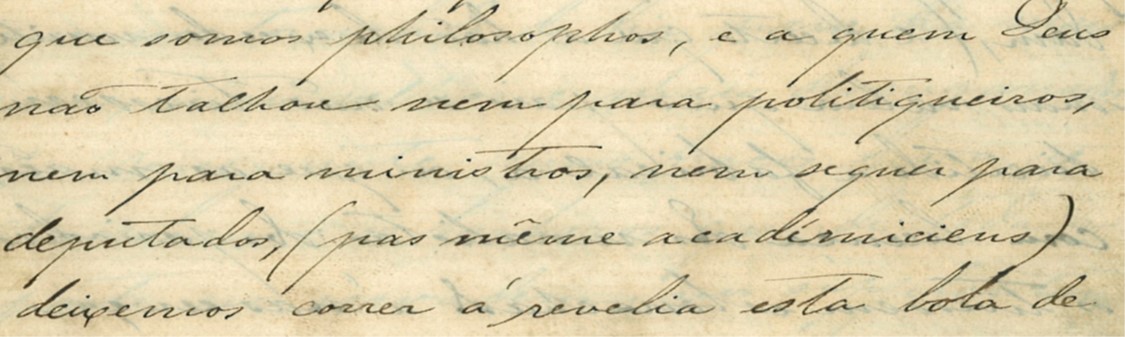 que somos philosophos, e a quem Deus
não talhou nem para politiqueiros,
nem para ministros, nem sequer para
deputados, (pas même académiciens)
deixemos correr á revelia esta bola de